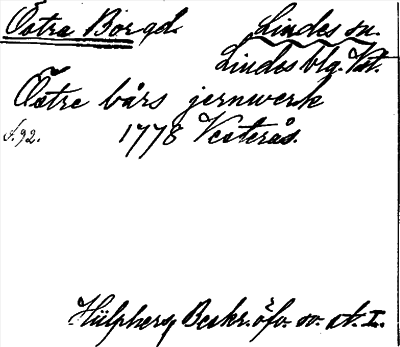 Östra Bor gd. Lindes sn.
Lindes blg. Vst.
Östre bårs jernwerk
s. 92. 1778 Vesterås.
Hülphers, Beskr. öfv. sv. st. I.